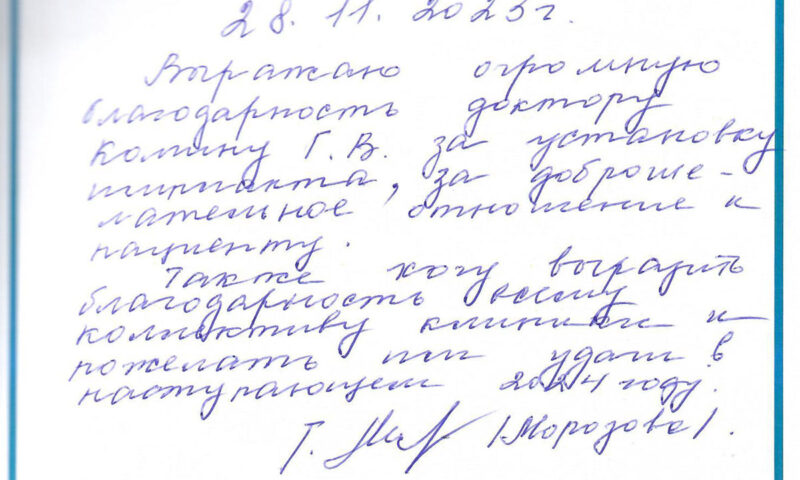 28. 11. 2023г.
Выражаю огромную
благодарность доктору
Комину Г. В. за установку
импланта, за доброже-
лательное отношение к
пациенту.
Также хочу выразить
благодарность всему
коллективу клиники и
пожелать им удачи в
наступающем 2024 году.
Г. /Морозова/.